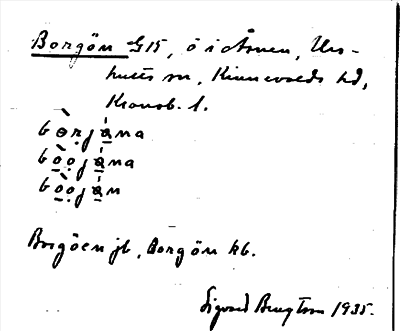 Borgön G15, ö i Åsnen, Urs-
hults sn, Kinnevalds hd,
Kronob. l.
bòrjána
bòo̩jána
bòo̩ján
Borgöen jb, Borgön kb.
Sigurd Bengtson 1935.